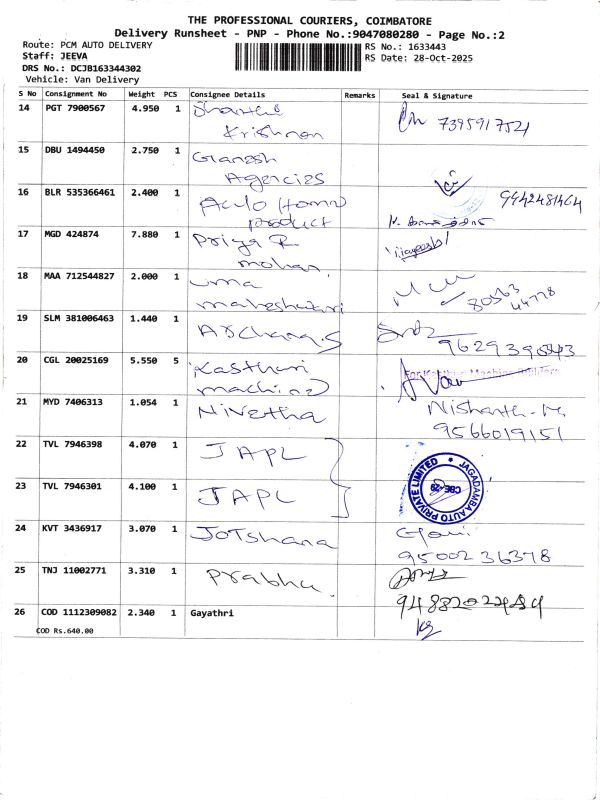 THE PROFESSIONAL COURIERS, COIMBATORE
Delivery Runsheet - PNP - Phone No.:9047080280 - Page No.:2
Route: PCM AUTO DELIVERY
RS No.: 1633443
Staff: JEEVA
RS Date: 28-Oct-2025
DRS No.: DCJB163344302
Vehicle: Van Delivery
S No Consignment No Weight PCS Consignee Details Remarks Seal & Signature
14 PGT 7900567 4.950 1 Shanthi
Krishnan
7395917521
15 DBU 1494450 2.750 1 Ganesh
Agencies
16 BLR 535366461 2.400 1 Auto Home
product
9442481464
17 MGD 424874 7.880 1 Priya R
mohan
18 MAA 712544827 2.000 1 uma
maheshwari
80563
44778
19 SLM 381006463 1.440 1 Archana.S
9629390843
20 CGL 20025169 5.550 5 Kasthuri
machine
21 MYD 7406313 1.054 1 Nivetha
Nishanth.M.
9566019151
22 TVL 7946398 4.070 1 JAPL
23 TVL 7946301 4.100 1 JAPL
JAGADAMBA AUTO PRIVATE LIMITED
CBE-29
24 KVT 3436917 3.070 1 Jotshana
95002 36378
25 TNJ 11002771 3.310 1 Prabhu.
26 COD 1112309082 2.340 1 Gayathri
COD Rs.640.00